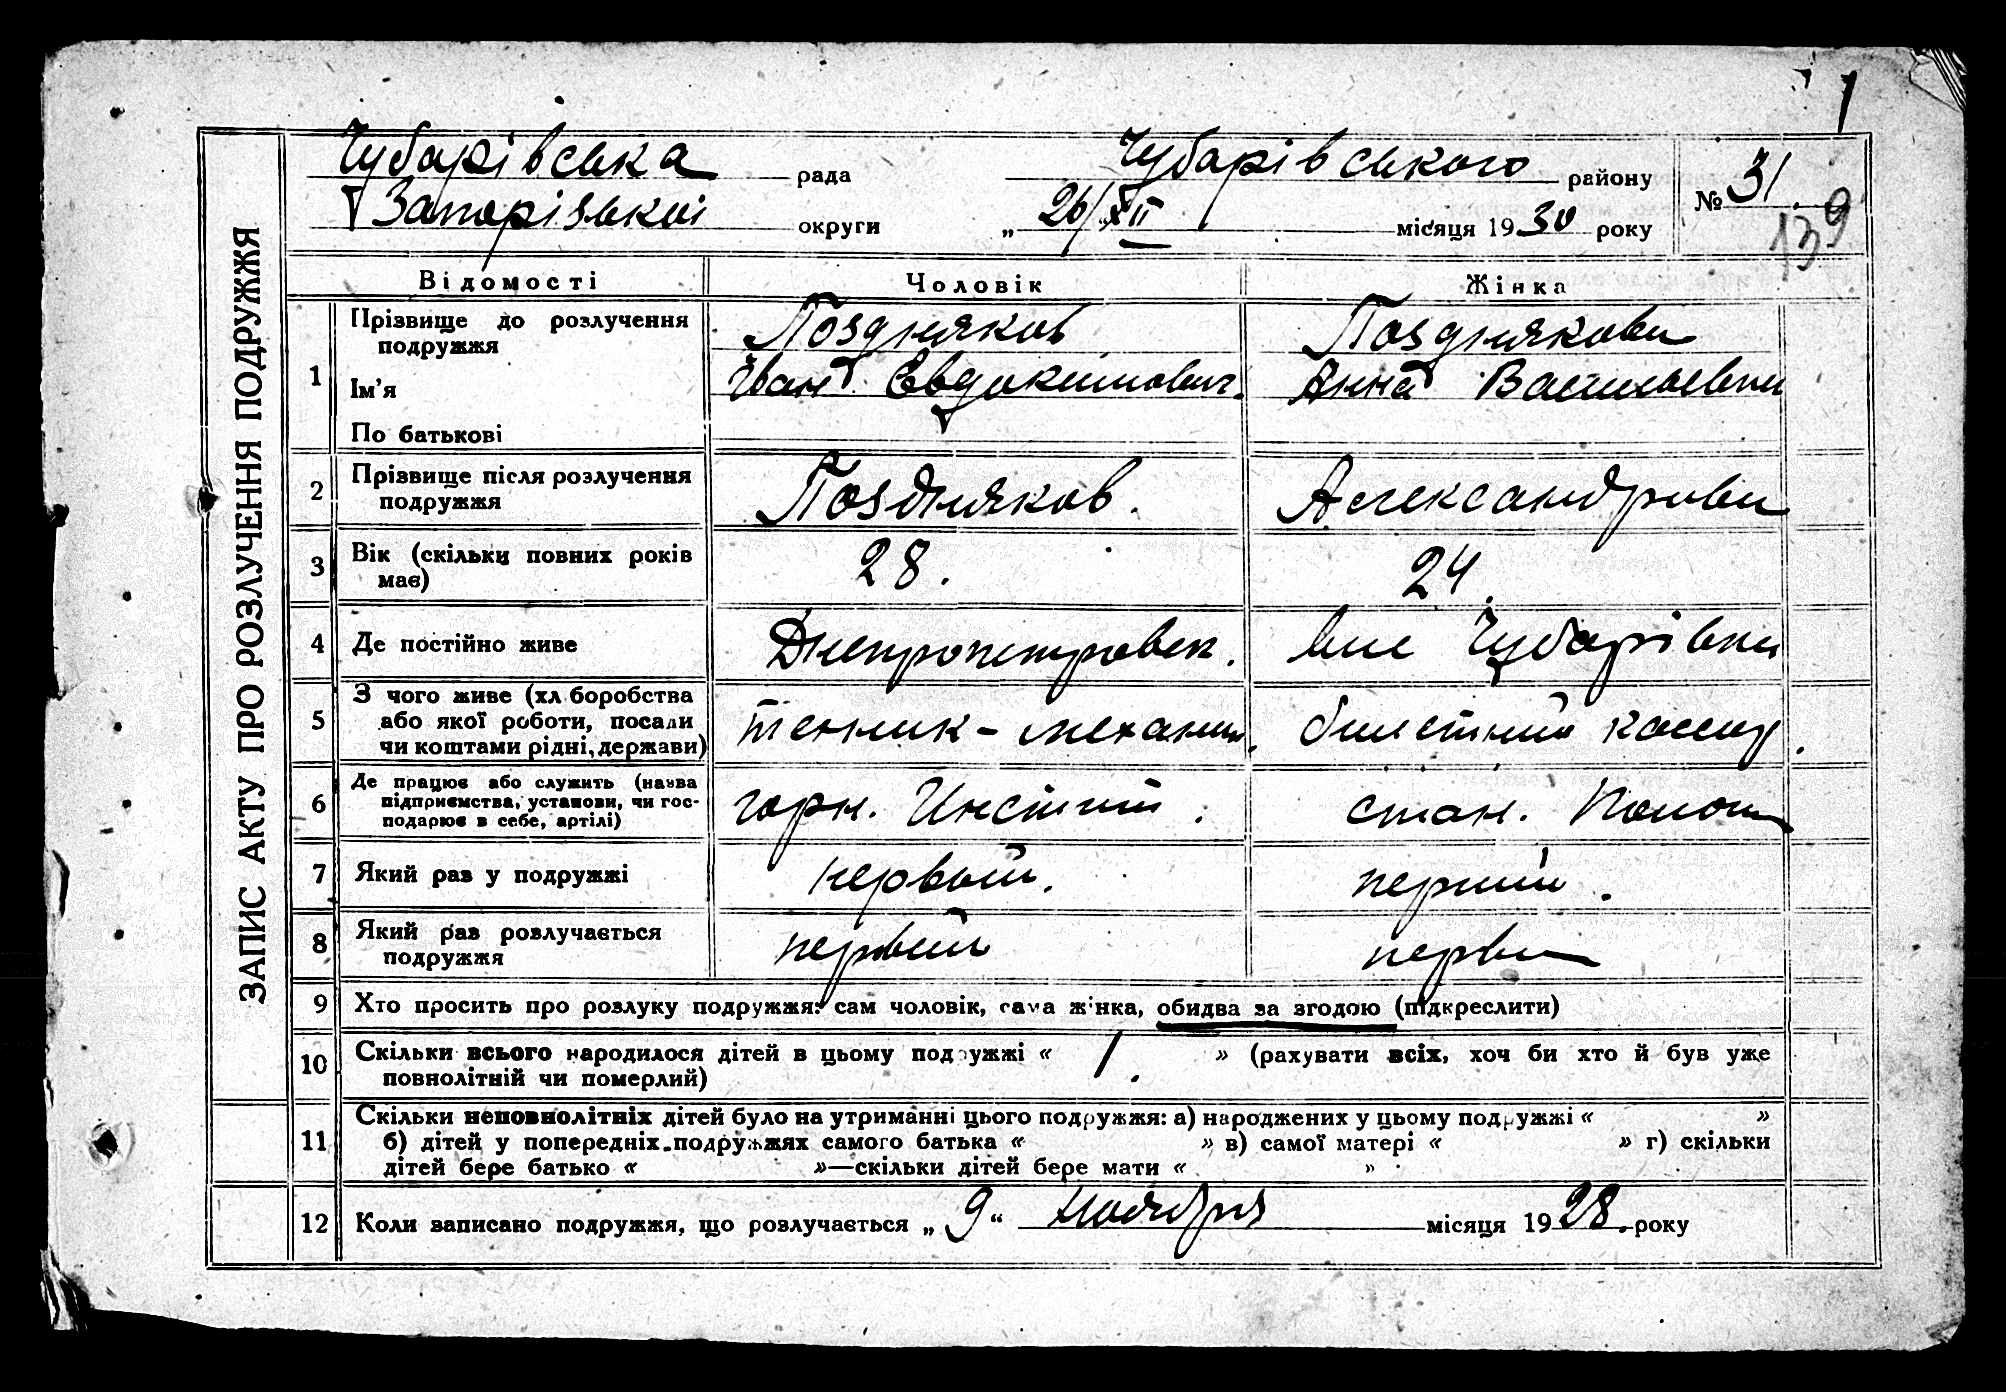 1
Чубарівська рада Чубарівського району № 31.
Запорізької округи „ 26/XII місяця 1930 року 139
ЗАПИС АКТУ ПРО РОЗЛУЧЕННЯ ПОДРУЖЖЯ
Відомості Чоловік Жінка
1 Прізвище до розлучення Поздняков Позднякова
подружжя
Ім'я Іван Евдокимович. Анна Васильевна
По батькові
2 Прізвище після розлучення Поздняков. Александрова
подружжя
3 Вік (скільки повних років 28. 24.
має)
4 Де постійно живе Днепропетровск. Чубарівка
5 З чого живе (хліборобства
або якої роботи, посади техник-механик. билетний кассир.
чи коштами рідні, держави)
6 Де працює або служить (назва
підприємства, установи, чи гос- горн. Инстит. стан.
подарює в себе, артілі)
7 Який раз у подружжі первый. перший.
8 Який раз розлучається первый
подружжя
9 Хто просить про розлуку подружжя: сам чоловік, сама жінка, обидва за згодою (підкреслити)
10 Скільки всього народилося дітей в цьому подружжі « 1. » (рахувати всіх, хоч би хто й був уже
повнолітній чи померлий)
11 Скільки неповнолітніх дітей було на утриманні цього подружжя: а) народжених у цьому подружжі « »
б) дітей у попередніх подружжях самого батька « » в) самої матері « » г) скільки
дітей бере батько « »—скільки дітей бере мати « »
12 Коли записано подружжя, що розлучається „ 9 “ ноября місяця 1928. року